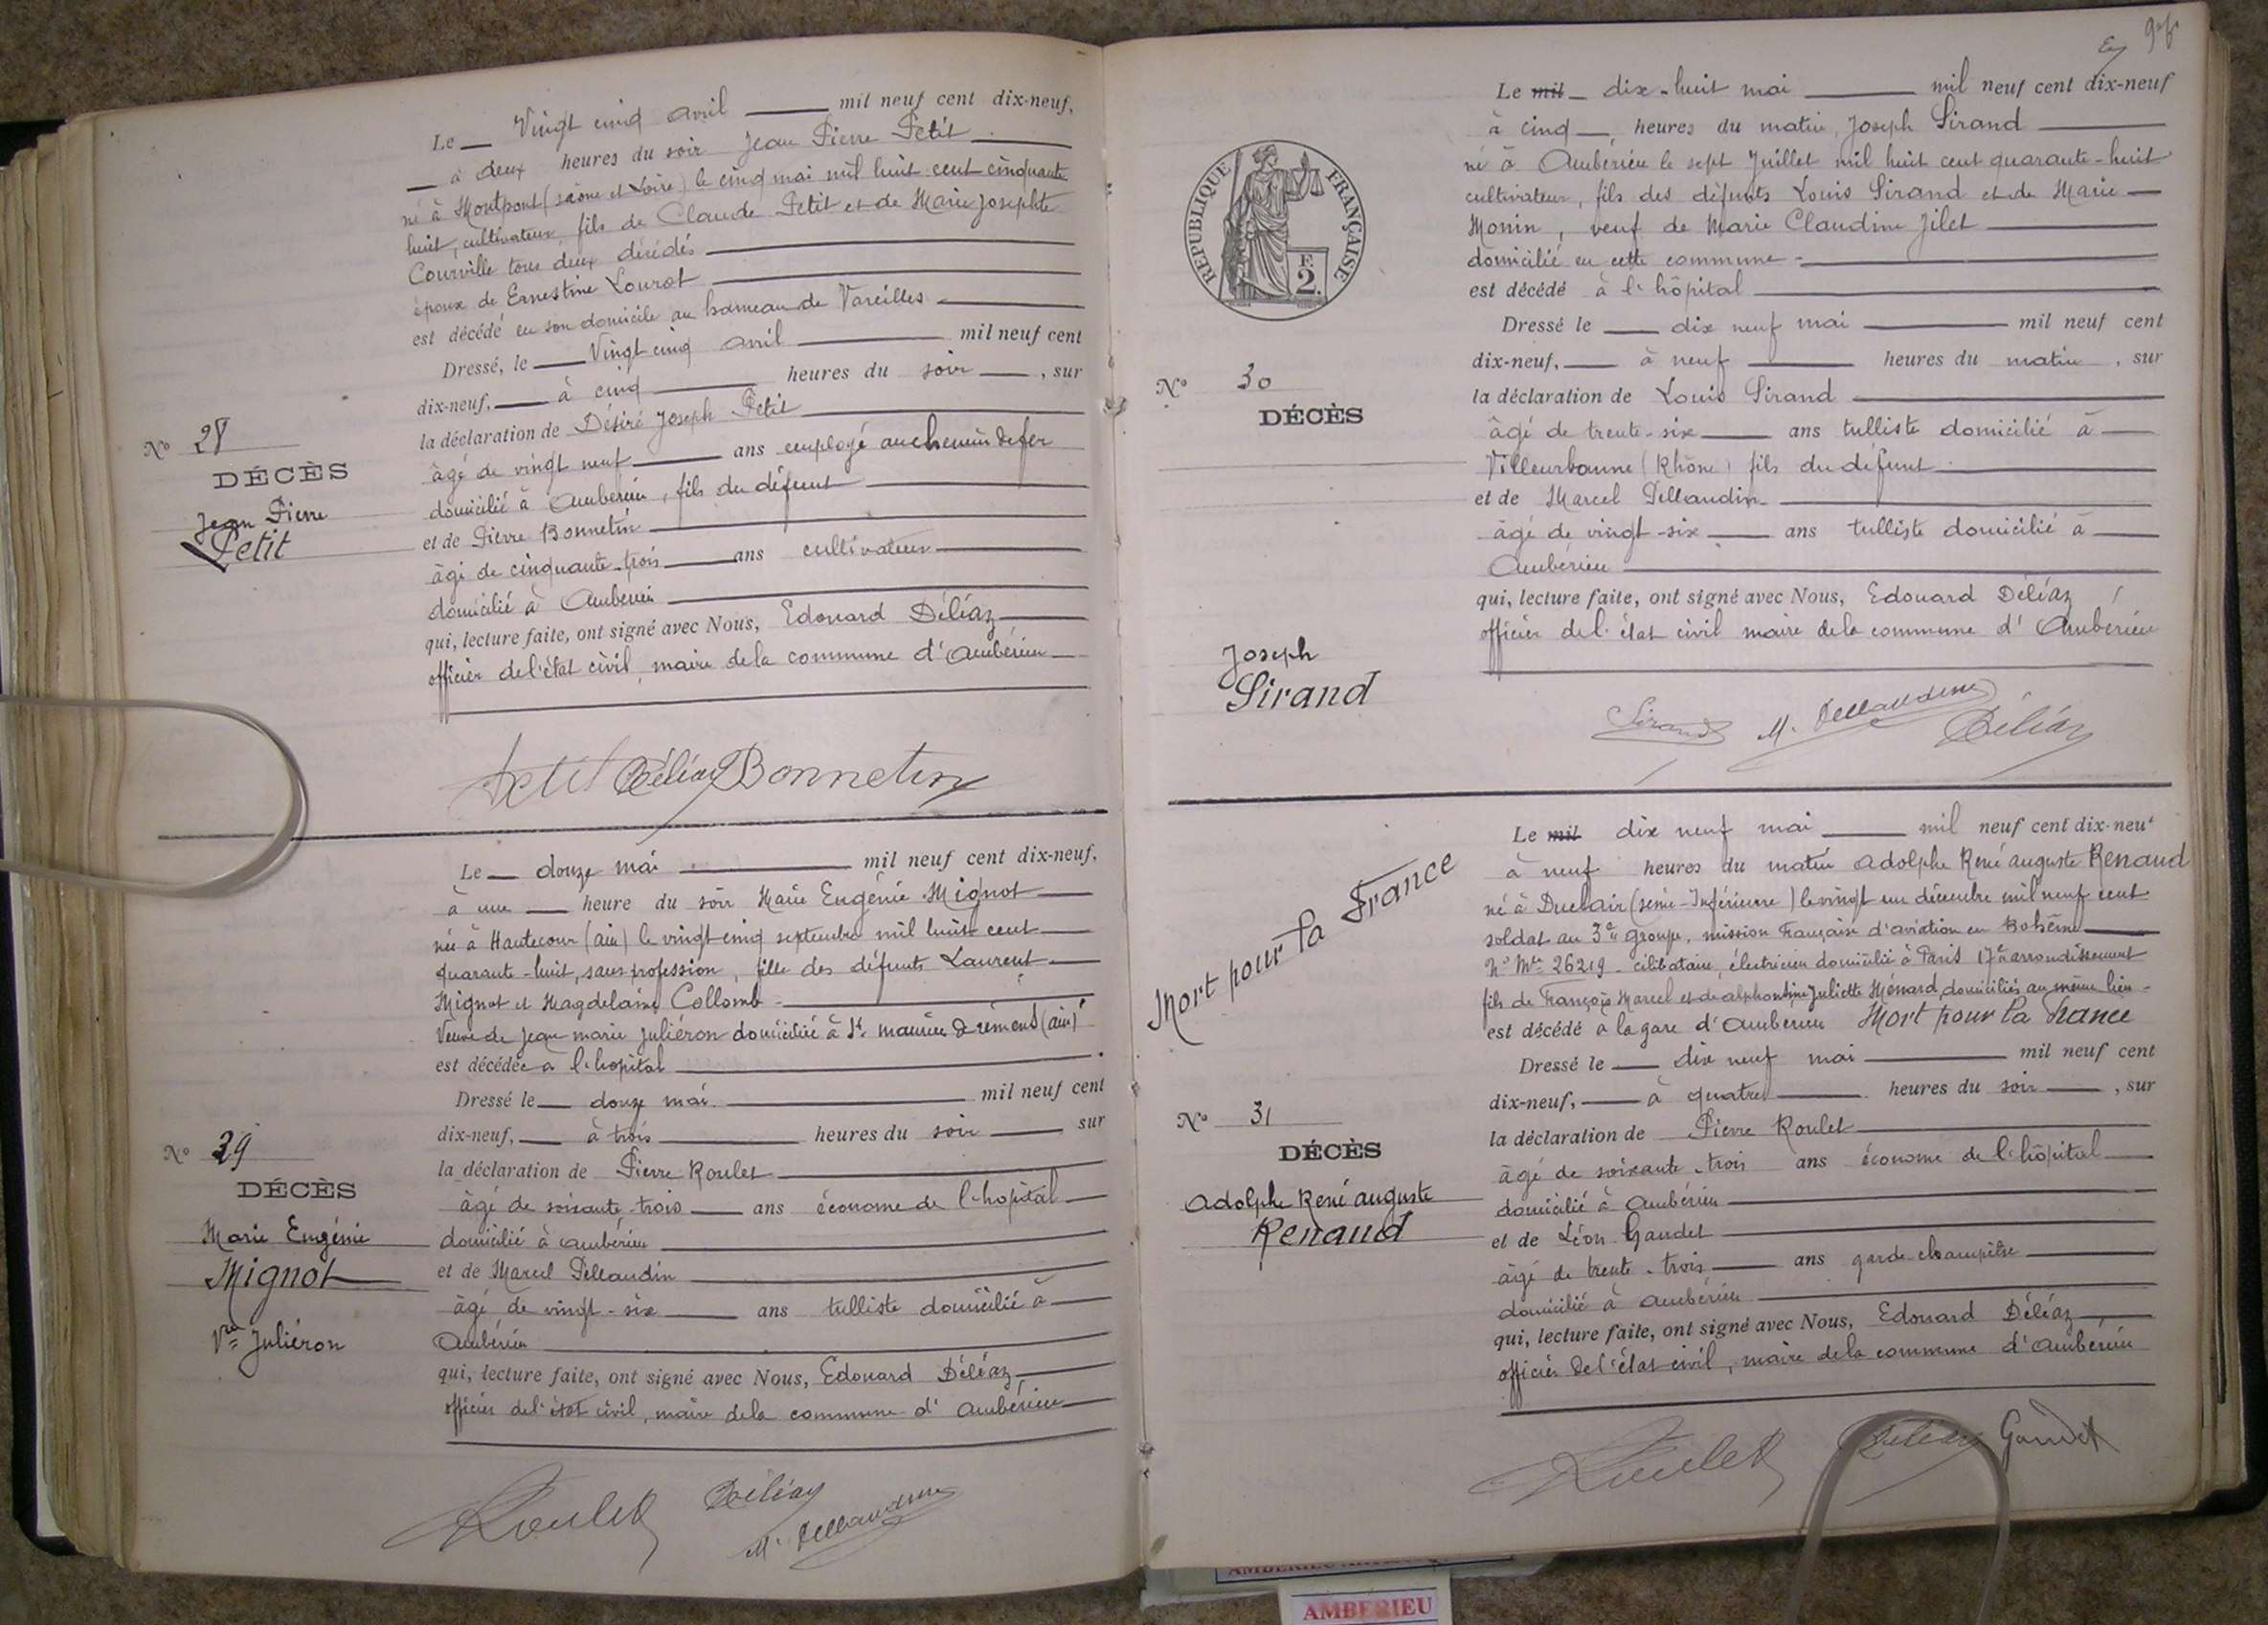 Le Vingt cinq avril mil neuf cent dix-neuf,
à deux heures du soir Jean Pierre Petit
né à Montpont (Saône et Loire) le cinq mai mil huit cent cinquante
huit, cultivateur, fils de Claude Petit et de Marie Josephte
Courville tous deux décédés
époux de Ernestine Lourot
est décédé en son domicile au hameau de Vareilles
Dressé, le Vingt cinq avril mil neuf cent
dix-neuf, à cinq heures du soir, sur
la déclaration de Désiré Joseph Petit
âgé de vingt neuf ans employé au chemin de fer
domicilié à Ambérieu, fils du défunt
et de Pierre Bonnetin
âgé de cinquante-trois ans cultivateur
domicilié à Ambérieu
qui, lecture faite, ont signé avec Nous, Edouard Déléaz
officier de l'état civil, maire de la commune d'Ambérieu
Nº 28
DÉCÈS
Jean Pierre
Petit
Petit Déléaz Bonnetin
Le douze mai mil neuf cent dix-neuf,
à une heure du soir Marie Eugénie Mignot
née à Hautecour (ain) le vingt cinq septembre mil huit cent
quarante-huit, sans profession, fille des défunts Laurent
Mignot et Magdelaine Collomb
Veuve de Jean marie Juliéron domiciliée à St maurice de rémens (ain)
est décédée a l'hopital
Dressé le douze mai mil neuf cent
dix-neuf, à trois heures du soir sur
la déclaration de Pierre Roulet
âgé de soixante-trois ans économe de l'hopital
domicilié à ambérieu
et de Marcel Pellaudin
âgé de vingt-six ans tulliste domicilié à
Ambérieu
qui, lecture faite, ont signé avec Nous, Edouard Déléaz
officier de l'état civil, maire de la commune d'Ambérieu
Nº 29
DÉCÈS
Marie Eugénie
Mignot
Vve Juliéron
Roulet Déléaz
M. Pellaudin
Le mil dix-huit mai mil neuf cent dix-neuf
à cinq heures du matin, Joseph Sirand
né à Ambérieu le sept Juillet mil huit cent quarante-huit
cultivateur, fils des défunts Louis Sirand et de Marie
Monin, veuf de Marie Claudine Jilet
domicilié en cette commune
est décédé à l'hôpital
Dressé le dix neuf mai mil neuf cent
dix-neuf, à neuf heures du matin, sur
la déclaration de Louis Sirand
âgé de trente-six ans tulliste domicilié à
Villeurbanne (Rhône) fils du défunt
et de Marcel Pellaudin
âgé de vingt-six ans tulliste domicilié à
Ambérieu
qui, lecture faite, ont signé avec Nous, Edouard Déléaz
officier de l'état civil maire de la commune d'Ambérieu
REPUBLIQUE FRANÇAISE
F.
2.
Nº 30
DÉCÈS
Joseph
Sirand
Sirand M. Pellaudin Déléaz
Le mil dix neuf mai mil neuf cent dix-neuf
à neuf heures du matin Adolphe René Auguste Renaud
né à Duclair (Seine-Inférieure) le vingt un décembre mil neuf cent
soldat au 3e groupe, mission Française d'aviation en Bohême
No Mle 26219 - célibataire, électricien domicilié à Paris 17e arrondissement
fils de François Marcel et de alphontine Juliette Ménard, domiciliés au même lieu
est décédé a la gare d'Ambérieu Mort pour la France
Dressé le dix neuf mai mil neuf cent
dix-neuf, à quatre heures du soir, sur
la déclaration de Pierre Roulet
âgé de soixante-trois ans économe de l'hôpital
domicilié à Ambérieu
et de Léon Gaudet
âgé de trente-trois ans garde-champêtre
domicilié à Ambérieu
qui, lecture faite, ont signé avec Nous, Edouard Déléaz
officier de l'état civil, maire de la commune d'Ambérieu
Mort pour la France
Nº 31
DÉCÈS
Adolphe René auguste
Renaud
Roulet Déléaz Gaudet
AMBERIEU